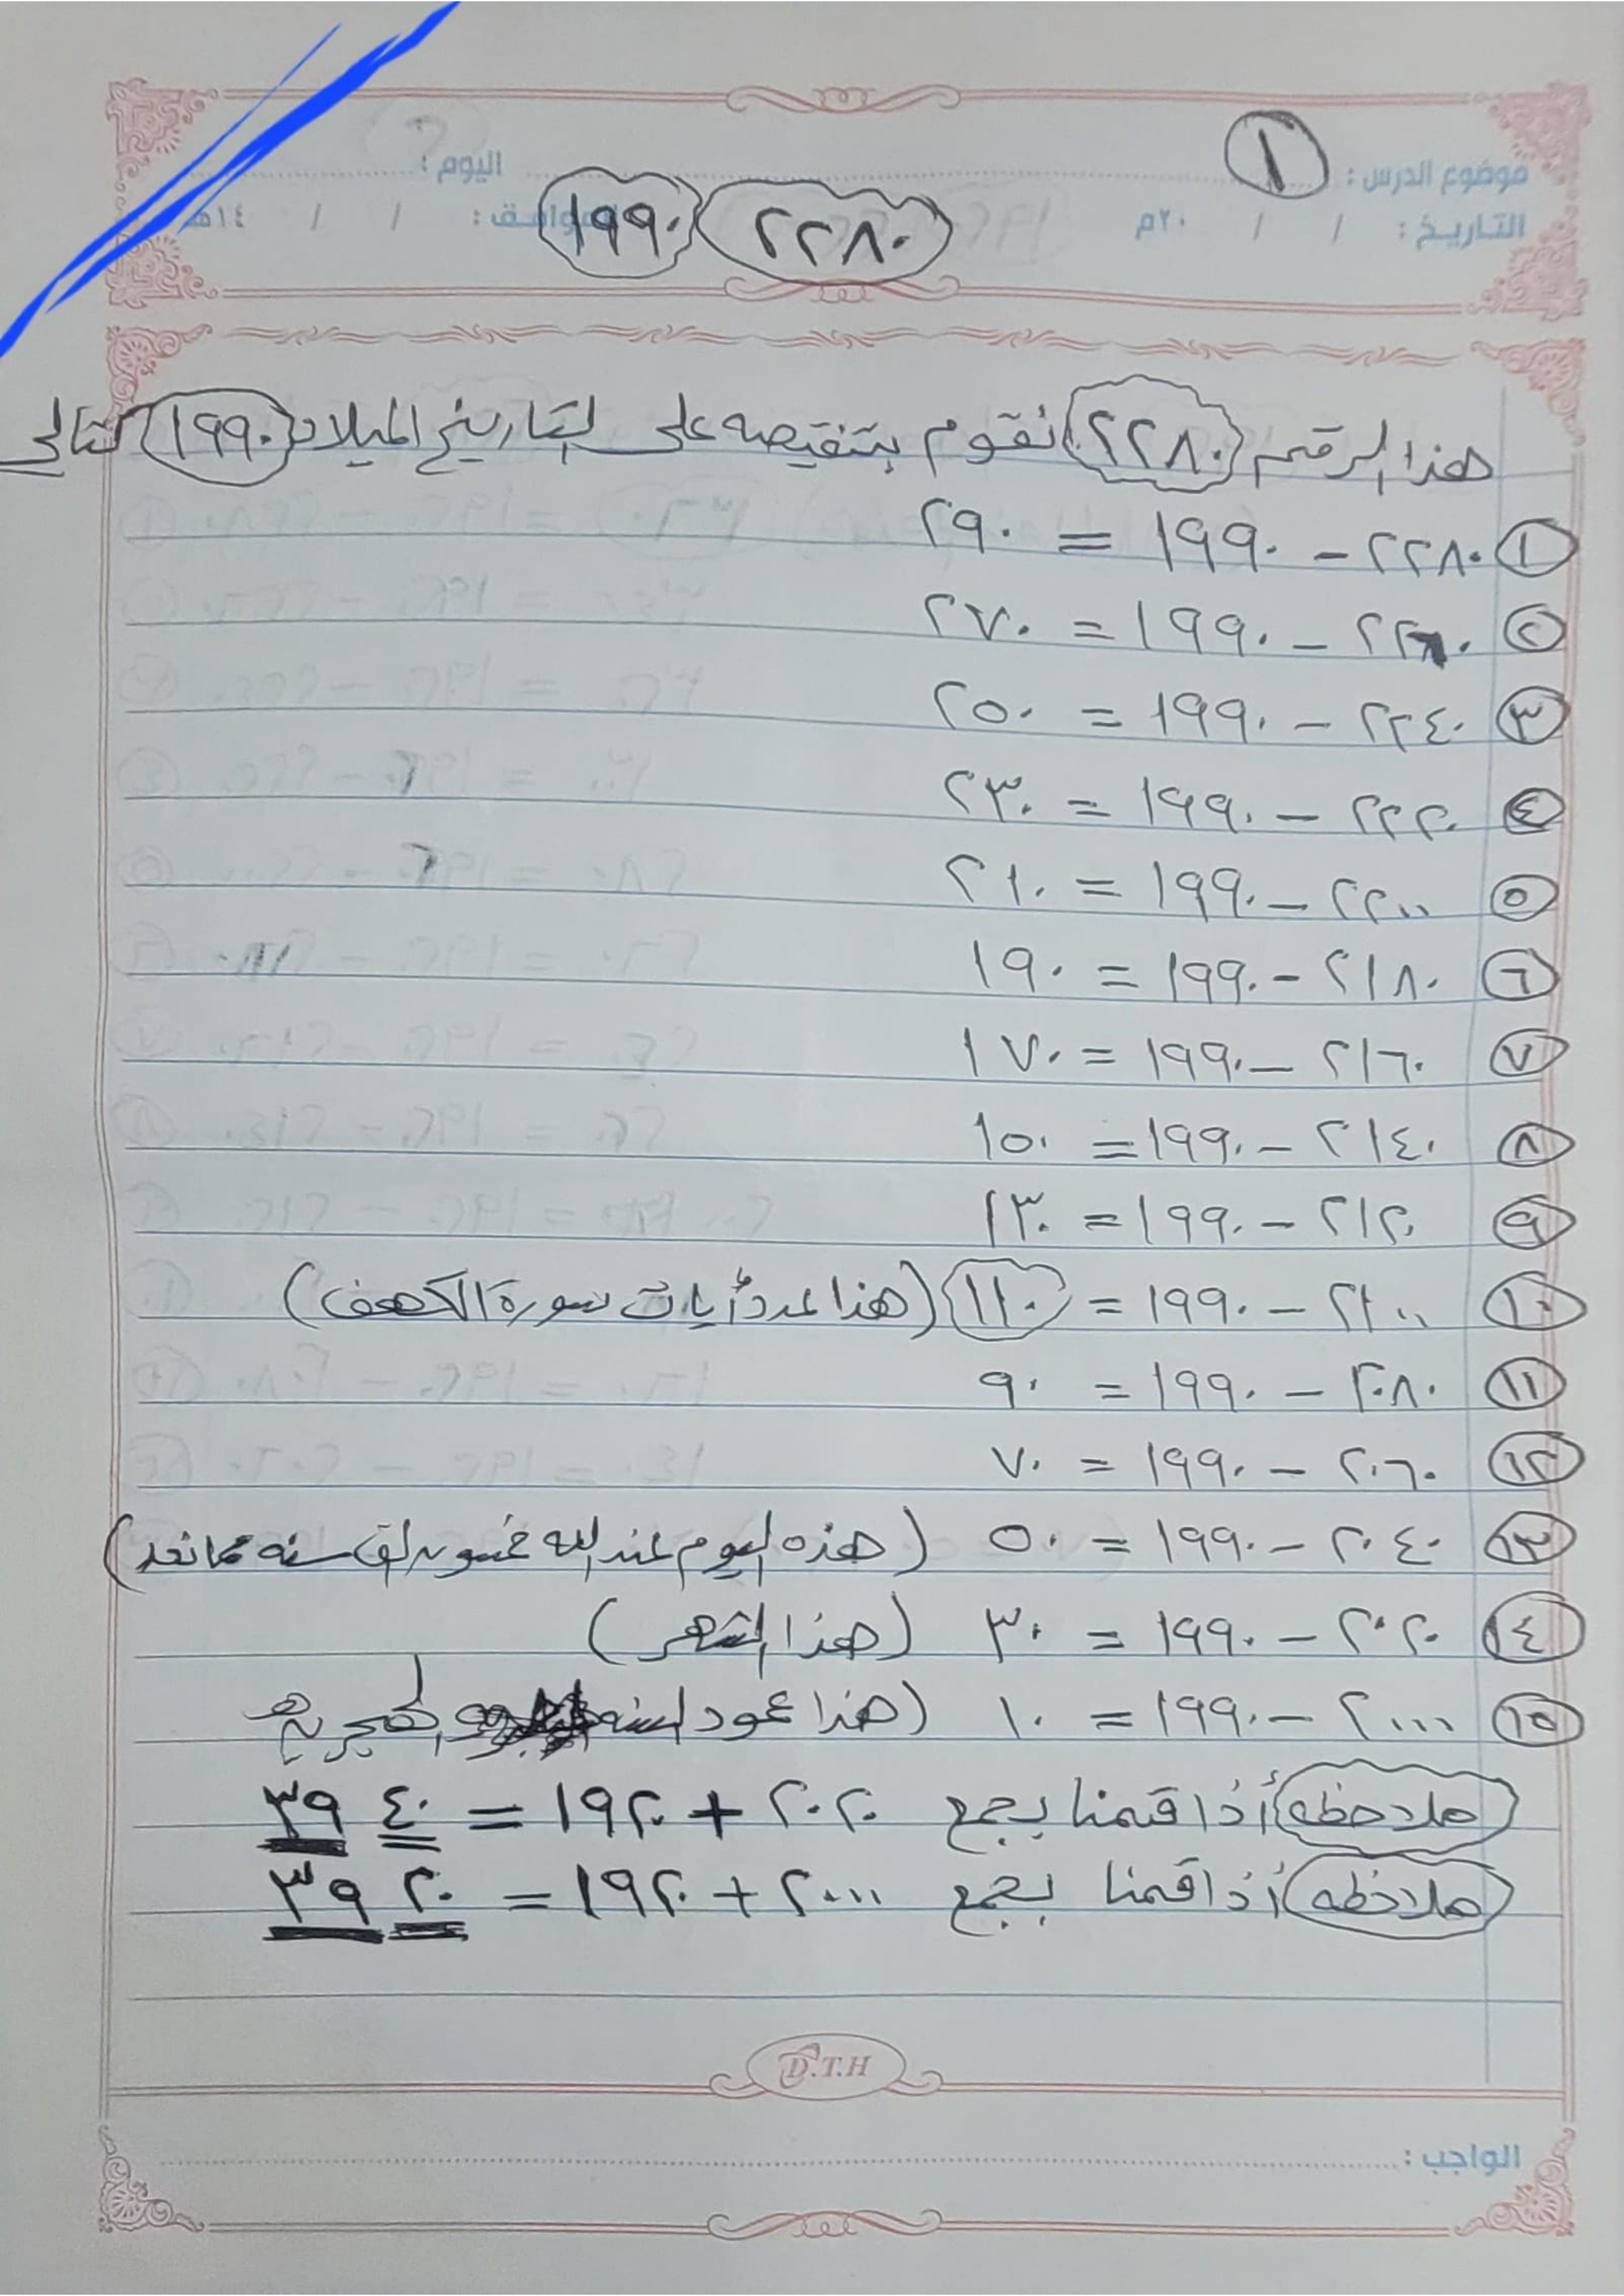 موضوع الدرس : ١ اليوم :
التاريخ : / / ٢٠م الموافق : / / ١٤هـ
٢٢٨٠ ١٩٩٠
هذا الرقم ٢٢٨٠ نقوم بتنقيصه على التاريخ الميلاد ١٩٩٠ كتالي
١ ٢٢٨٠ - ١٩٩٠ = ٢٩٠
٢ ٢٢٦٠ - ١٩٩٠ = ٢٧٠
٣ ٢٢٤٠ - ١٩٩٠ = ٢٥٠
٤ ٢٢٢٠ - ١٩٩٠ = ٢٣٠
٥ ٢٢٠٠ - ١٩٩٠ = ٢١٠
٦ ٢١٨٠ - ١٩٩٠ = ١٩٠
٧ ٢١٦٠ - ١٩٩٠ = ١٧٠
٨ ٢١٤٠ - ١٩٩٠ = ١٥٠
٩ ٢١٢٠ - ١٩٩٠ = ١٣٠
١٠ ٢١٠٠ - ١٩٩٠ = ١١٠ (هذا عدد أيات سورة الكهف)
١١ ٢٠٨٠ - ١٩٩٠ = ٩٠
١٢ ٢٠٦٠ - ١٩٩٠ = ٧٠
١٣ ٢٠٤٠ - ١٩٩٠ = ٥٠ (هذه اليوم عند الله خمسون الف سنه مما تعد)
١٤ ٢٠٢٠ - ١٩٩٠ = ٣٠ (هذا الشهر)
١٥ ٢٠٠٠ - ١٩٩٠ = ١٠ (هذا عمود السنه الهجريه
ملاحظه أذا قمنا بجمع ٢٠٢٠ + ١٩٢٠ = ٣٩٤٠
ملاحظه أذا قمنا بجمع ٢٠٠٠ + ١٩٢٠ = ٣٩٢٠
D.T.H
الواجب :